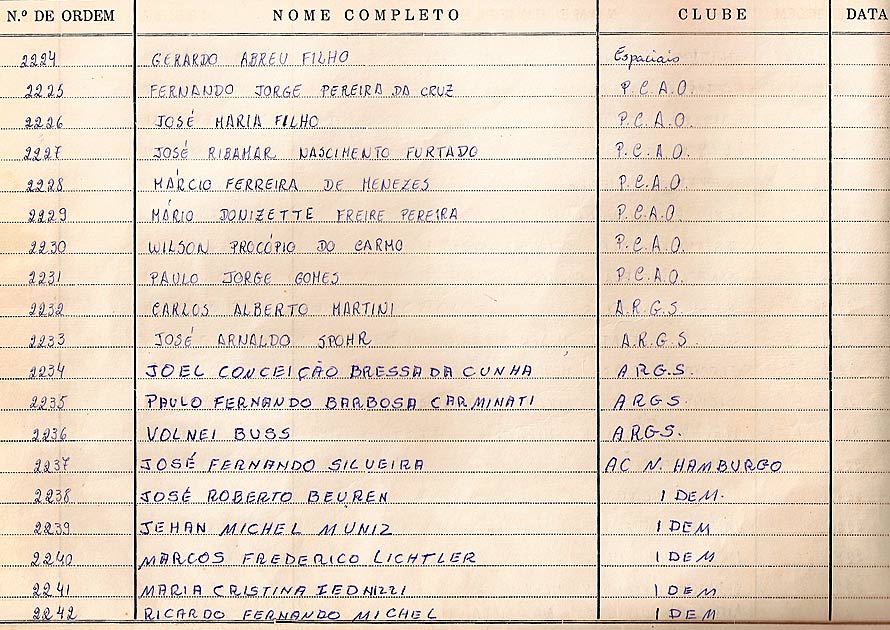 N.º DE ORDEM NOME COMPLETO CLUBE DATA
2224 GERARDO ABREU FILHO Espaciais
2225 FERNANDO JORGE PEREIRA DA CRUZ P.C.A.O.
2226 JOSÉ MARIA FILHO P.C.A.O.
2227 JOSÉ RIBAMAR NASCIMENTO FURTADO P.C.A.O.
2228 MÁRCIO FERREIRA DE MENEZES P.C.A.O.
2229 MÁRIO DONIZETTE FREIRE PEREIRA P.C.A.O
2230 WILSON PROCÓPIO DO CARMO P.C.A.O.
2231 PAULO JORGE GOMES P.C.A.O.
2232 CARLOS ALBERTO MARTINI A.R.G.S.
2233 JOSÉ ARNALDO SPOHR A.R.G.S.
2234 JOEL CONCEIÇÃO BRESSA DA CUNHA ARG.S.
2235 PAULO FERNANDO BARBOSA CARMINATI ARGS.
2236 VOLNEI BUSS ARGS.
2237 JOSÉ FERNANDO SILVEIRA AC N. HAMBURGO
2238 JOSÉ ROBERTO BEUREN IDEM.
2239 JEHAN MICHEL MUNIZ IDEM
2240 MARCOS FREDERICO LICHTLER IDEM
2241 MARIA CRISTINA IEDNIZZI IDEM
2242 RICARDO FERNANDO MICHEL IDEM